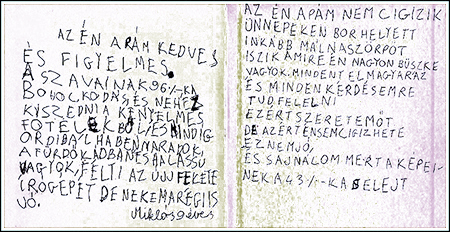 AZ ÉN APÁM KEDVES
ÉS FIGYELMES.
A SZAVAINAK 96%-KA
BOBOCKODÁS ÉS NEHEZ
KÚSZEDNI A KÉNYELMES
FOTELEKBŐL ÉS MINDIG
ORDIBÁL HA BENMARADOK
A FÜRDŐKÁDBAN ÉS HA LASSU
VAGYOK, FÉLTI AZ ÚJ FEKETE
ÍRÓGÉPÉT DE NEKEM A RÉGI IS
JÓ.
Miklós 9 éves
AZ ÉN APÁM NEM CIGIZIK
ÜNNEPEKEN BOR HELYETT
INKÁBB MÁLNASZÖRPÖT
ISZIK AMIRE ÉN NAGYON BÜSZKE
VAGYOK. MINDENT ELMAGYARÁZ
ÉS MINDEN KÉRDÉSEMRE
TUD FELELNI
EZÉRT SZERETEM ŐT
DE AZÉRT ÉN SEM CIGIZHETÉ
EZ NEM JÓ,
ÉS SAJNÁLOM MERT A KÉPEI-
NEK A 43%-KA SELEJT